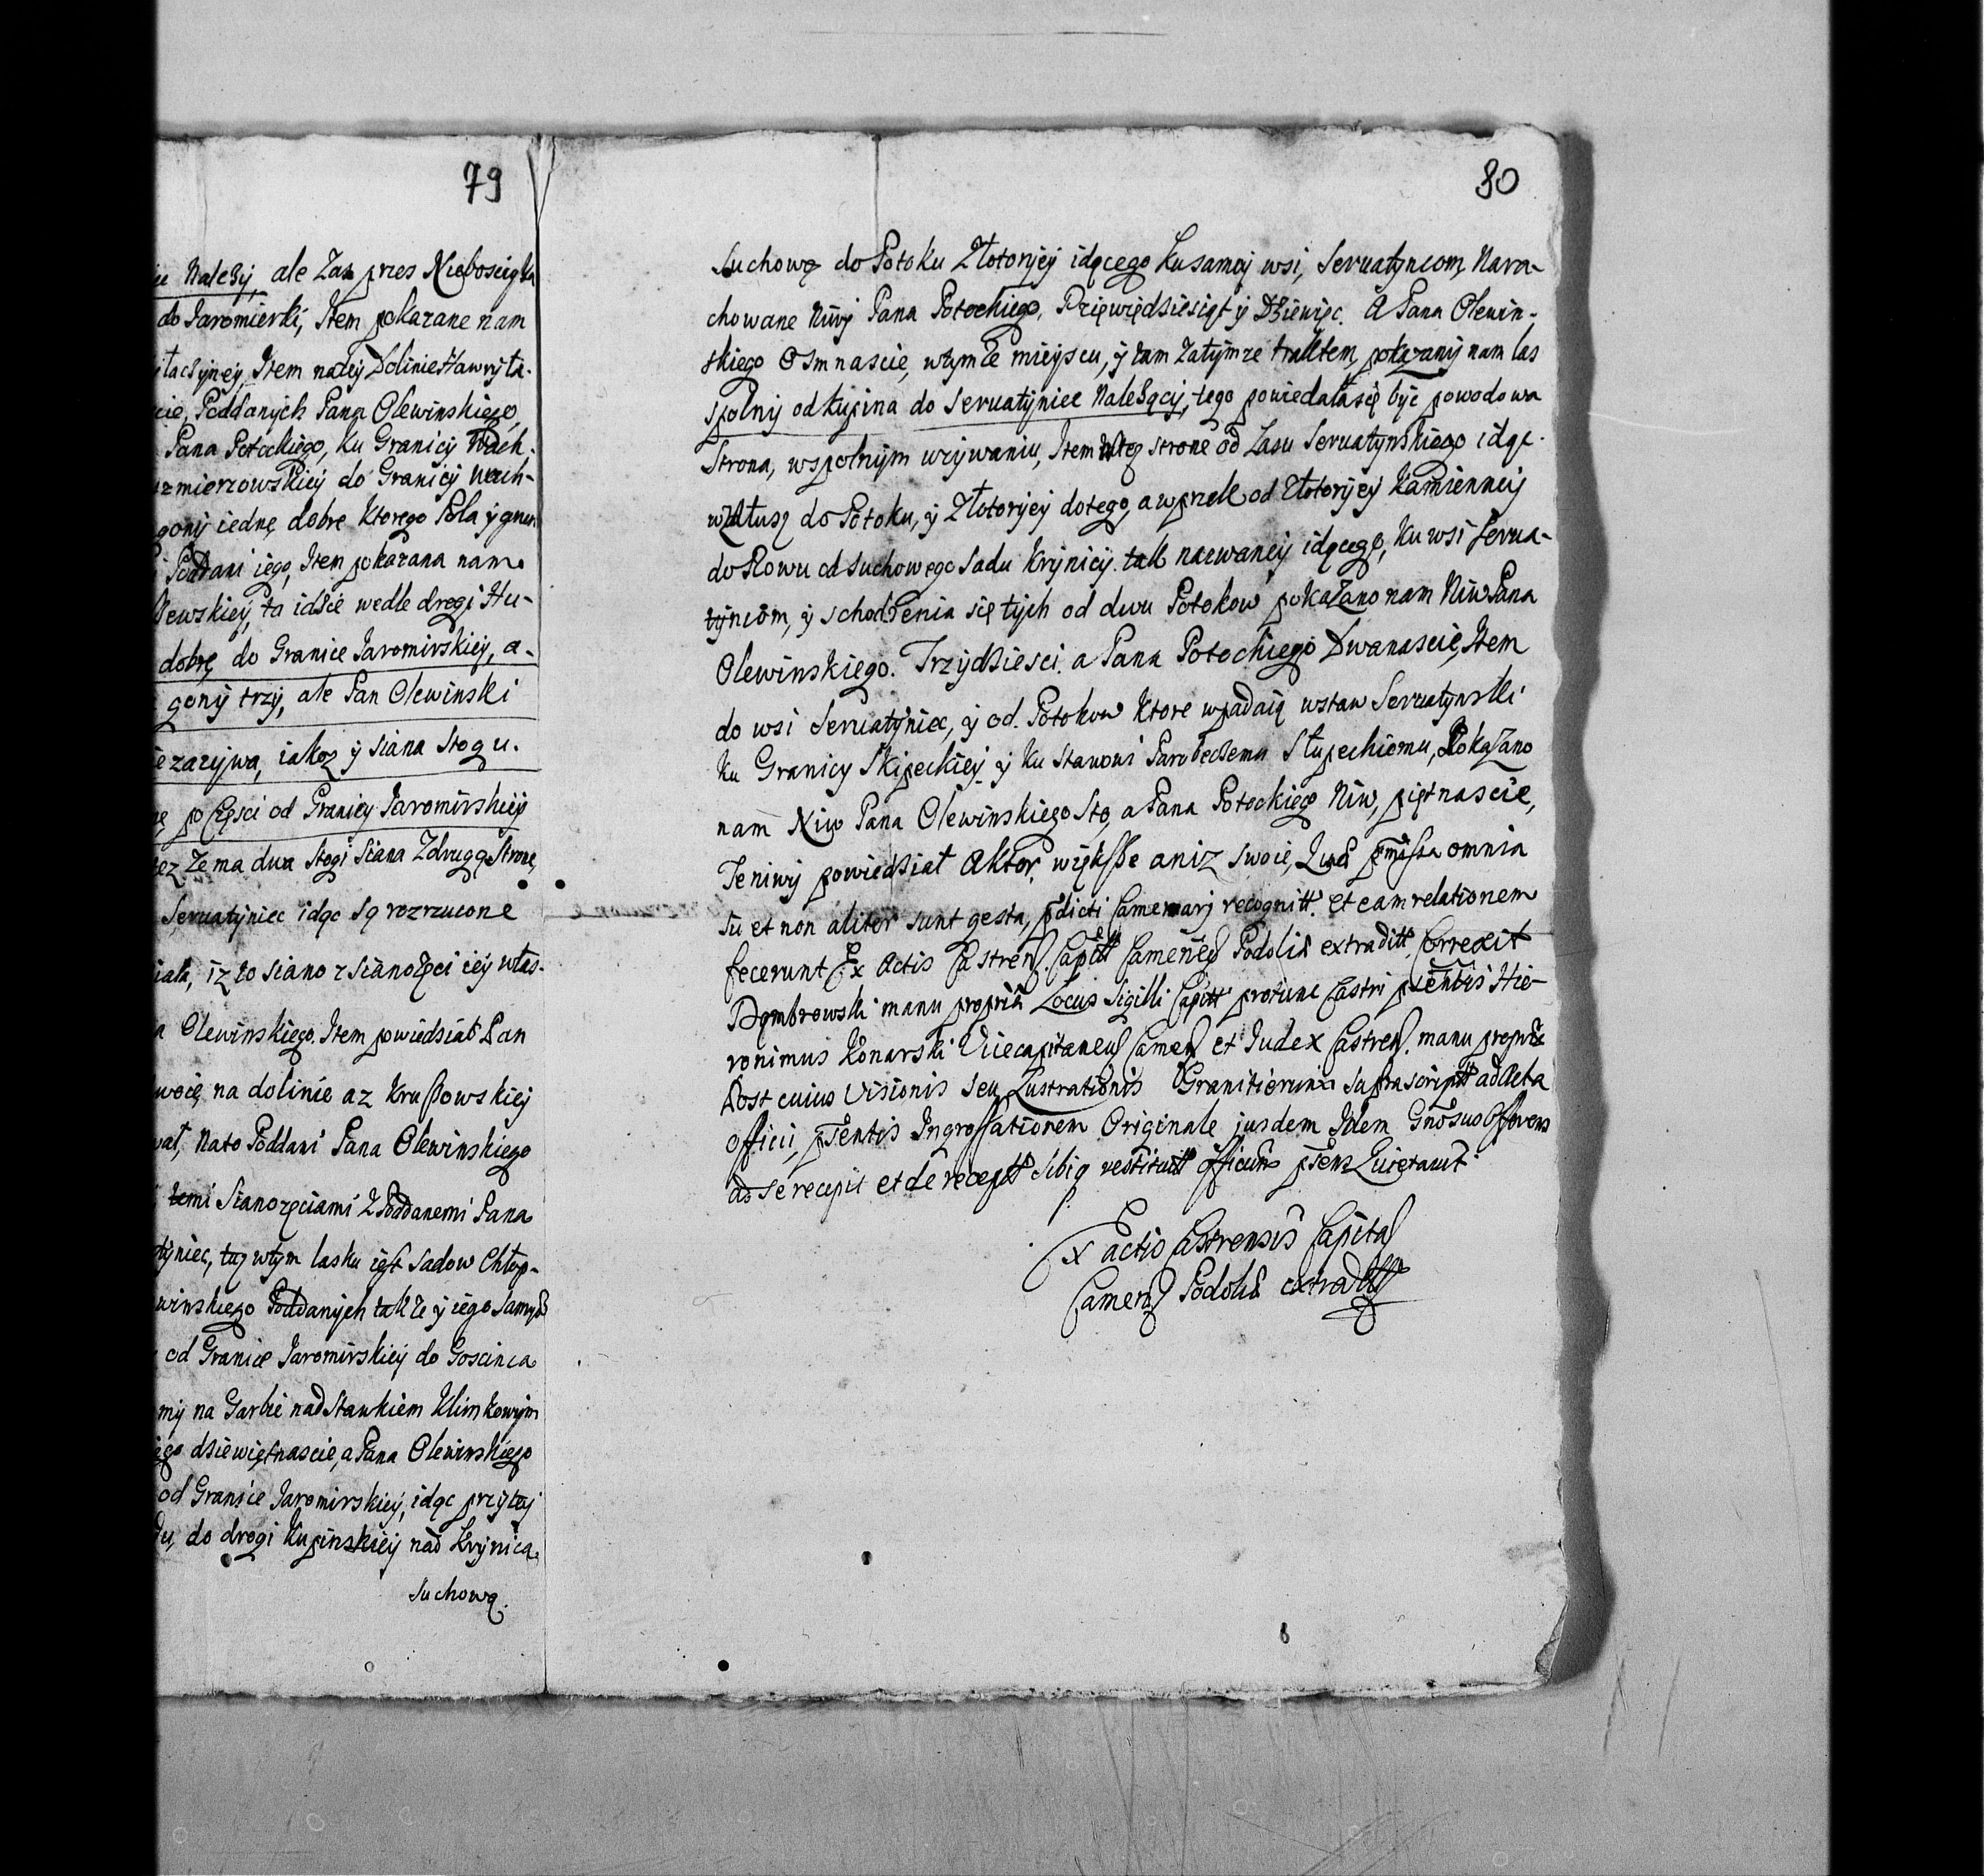 79
ale Zas przes Nieboscyka
do Jaromierki, Item pokazane nam
Item na tey Dolinie Hawryła-
Poddanych Pana Olewinskiego
Pana Potockiego, ku Granicy Wach-
do Granicy Wach-
gony iednę dobrę ktorego Pola y grun
Poddani iego, Item pokazana nam
ta idzie wedle drogi Hu-
dobrę do Granice Jaromirskiey, a-
gony trzy, ale Pan Olewinski
zazywa, iakoz y siana stog u.
po Częsci od Granicy Jaromirskiey
ze ma dwa stogi siana Zdrugą Stronę,
Serwatyniec idąc są rozrzucone
iz to siano z sianozęci iey włas-
Olewinskiego. Item powiedział Pan
na dolinie az Kruszowskiey
Nato Poddani Pana Olewinskiego
temi Sianozęciami Z Poddanemi Pana
tuz wtym lasku iest Sadow Chłop-
Poddanych takze y iego samego
od Granice Jaromirskiey do Goscinca
na Garbie nad Stawkiem Klimkowym
dziewiętnascie, a Pana Olewinskiego
od Granice Jaromirskiey, idąc przytey
do drogi Kupinskiey nad Krynicą
Suchową.
80
Suchową do Potoku Złotoryey idącego kusamey wsi, Serwatyncom, Nara-
chowane Niwy Pana Potockiego, Dzięwiędziesiąt y Dziewięc. A Pana Olewin-
skiego Osmnascie, wtymze mieyscu, y tam Zatymze traktem, pokazany nam las
Spolny od Kupina do Serwatyniec Nalezący, tego powiedała się byc powodowa
Strona, wspolnym uzywaniu, Item wteg stronę od Lasu Serwatynskiego idąc
wzdłusz do Potoku, y Złotoryey dotego, a wprzek od Złotoryey Kamienney
do Rowu od Suchowego Sadu Krynicy tak nazwaney idącego, ku wsi Serwa-
tyncom, y schodzenia się tych od dwu Potokow pokazano nam Niw Pana
Olewinskiego. Trzydziesci. a Pana Potockiego Dwanascie, Item
do wsi Serwatyniec, y od Potokow ktore wpadaią wstaw Serwatynski
ku Granicy Skipeckiey y ku Stawowi Parobeczemu Słupeckiemu, Pokazano
nam Niw Pana Olewinskiego Sto, a Pana Potockiego Niw, piętnascie,
Te niwy powiedział Aktor, większe aniz swoie, Quae pmissa omnia
su et non aliter sunt gesta, pdicti Camerarj recognitt. et eam relationem
fecerunt Ex Actis Castren. Capitt Camenen Podoliæ extraditt. Correxit
Dąmbrowski manu propriâ Locus Sigilli Capitt protunc Castri psentis Hie-
ronimus Konarski Vicecapitaneus Camen et Iudex Castren. manu propriâ
Post cuius Visionis seu Lustrationis Granitierum suprascriptt ad Acta
Officii, psentis Ingrossationem Originale jusdem Idem Gnosus Offerens
ad se recepit et de receptt sibiq restitutt Officium psens Quietavit.
Ex actis Castrensib Capital
Camen Podoliæ extraditt